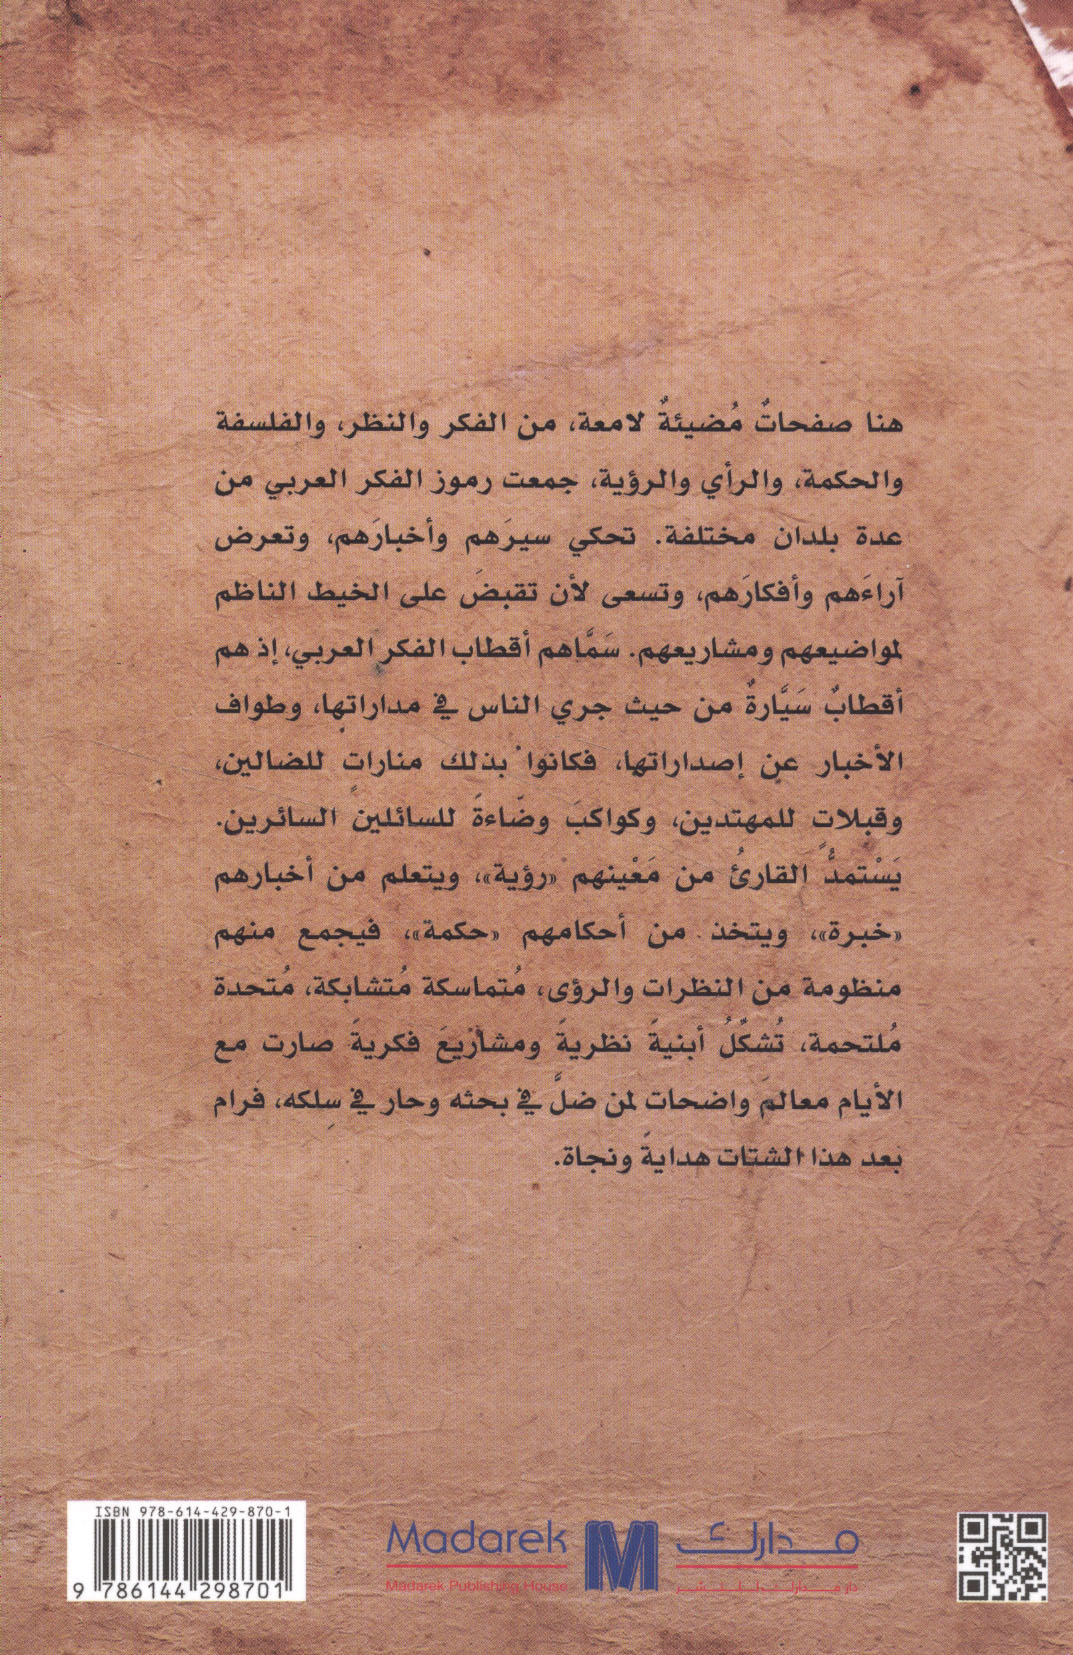 هنا صفحاتٌ مُضيئةٌ لامعة، من الفكر والنظر، والفلسفة
والحكمة، والرأي والرؤية، جمعت رموز الفكر العربي من
عدة بلدان مختلفة. تحكي سيرَهم وأخبارَهم، وتعرض
آراءَهم وأفكارَهم، وتسعى لأن تقبضَ على الخيط الناظم
لمواضيعهم ومشاريعهم. سَمَّاهم أقطاب الفكر العربي، إذ هم
أقطابٌ سَيَّارةٌ من حيث جري الناس في مداراتها، وطواف
الأخبار عن إصداراتها، فكانوا بذلك مناراتٍ للضالين،
وقبلاتٍ للمهتدين، وكواكبَ وضّاءةً للسائلين السائرين.
يَسْتمدُّ القارئُ من مَعْينهم «رؤية»، ويتعلم من أخبارهم
«خبرة»، ويتخذ من أحكامهم «حكمة»، فيجمع منهم
منظومة من النظرات والرؤى، مُتماسكة مُتشابكة، مُتحدة
مُلتحمة، تُشكِّلُ أبنيةً نظريةً ومشاريعَ فكريةً صارت مع
الأيام معالمَ واضحات لمن ضلَّ في بحثه وحار في سِلكه، فرام
بعد هذا الشتات هدايةً ونجاة.
ISBN 978-614-429-870-1
9 786144 298701
Madarek
Madarek Publishing House
مدارك
دار مدارك للنشر